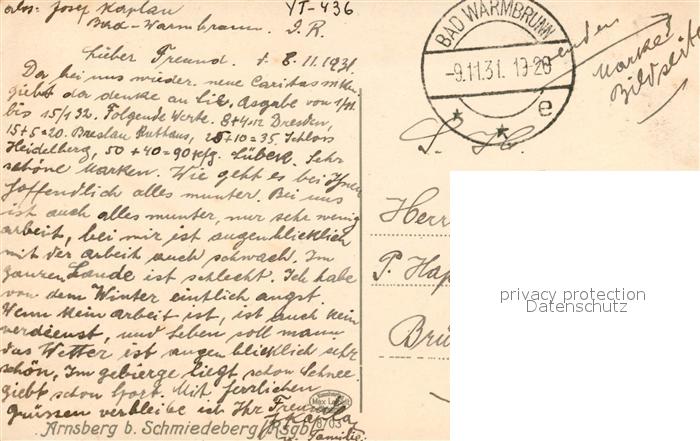 Abs: Josef Kaplan YT-436
Bad-Warmbrunn. I. R.
Lieber Freund. d. 8.11.1931.
Da bei uns wieder neue Caritasmke
giebt da denke an Sie, Asgabe von 1/11
bis 15/1 32. Folgende Werte. 8+4=12 Dresden,
15+5=20. Breslau Rathaus, 25+10=35. Schloss
Heidelberg, 50+40=90 Pfg. Lübeck. Sehr
schöne Marken. Wie geht es bei Ihnen
hoffendlich alles munter. Bei uns
ist auch alles munter, nur sehr wenig
arbeit, bei mir ist augenblicklich
mit der arbeit auch schwach. Im
ganzen Lande ist schlecht. Ich habe
vor dem Winter eintlich angst.
Wenn kein arbeit ist, ist auch kein
verdienst, und Leben soll mann
das Wetter ist augenblicklich sehr
schön, Im gebierge liegt schon Schnee
giebt schon Sport. Mit herrlichen
grüssen verbleibe ich Ihr Freund
JKaplan
u. Familie.
Arnsberg b. Schmiedeberg Rsgb.
8703
BAD WARMBRUNN
-9.11.31. 19-20
e
Marke
Bildseite
S. H.
Herr
P. Hap
Brü
privacy protection
Datenschutz